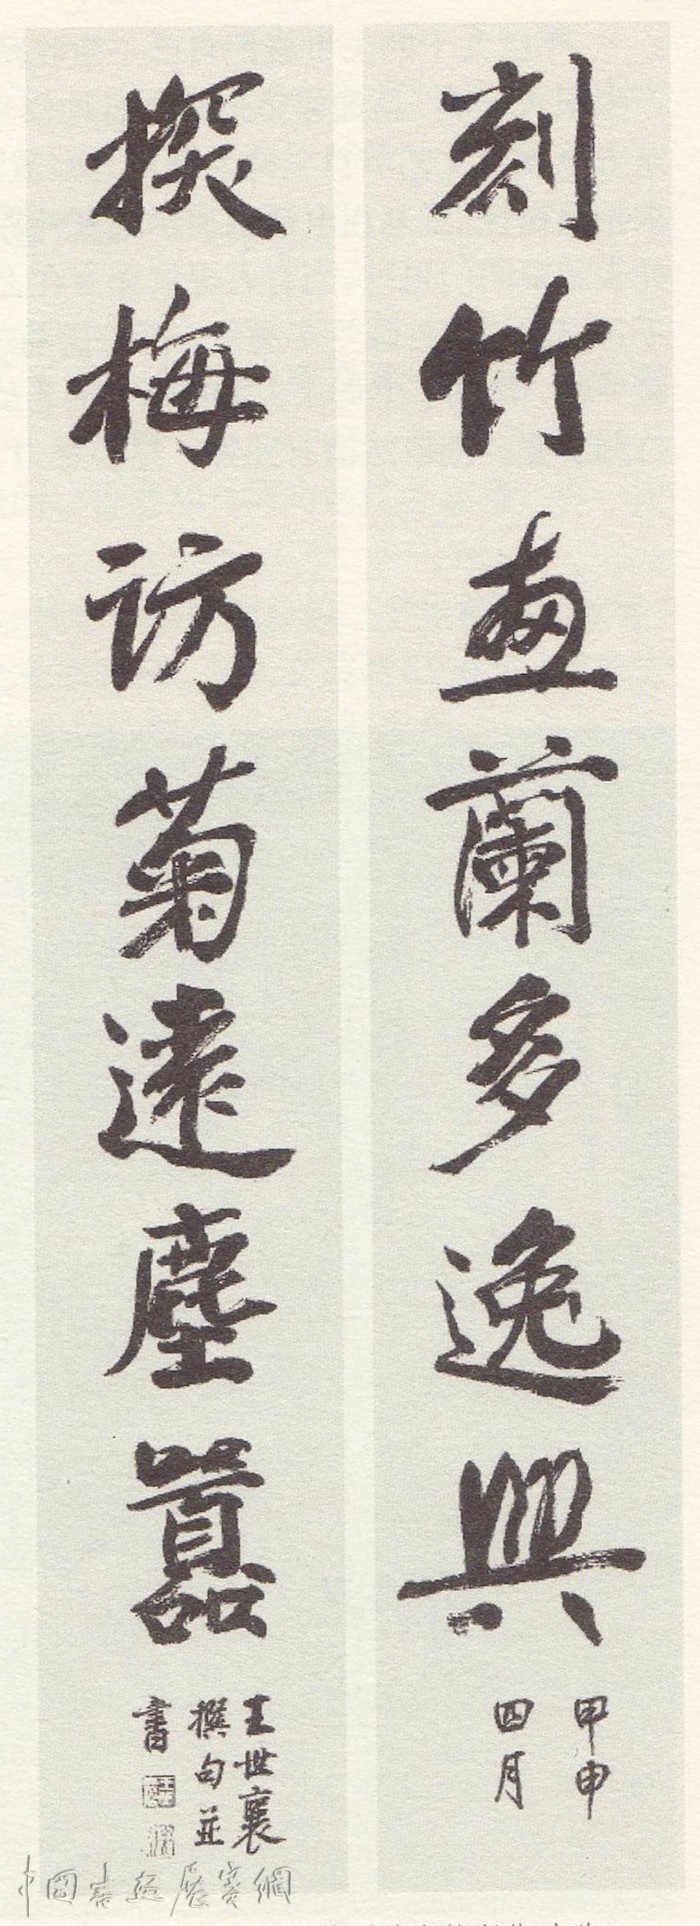 刻竹畫蘭多逸興
甲申
四月
探梅訪菊遠塵囂
王世襄
撰句並
書
中國書法展賽網